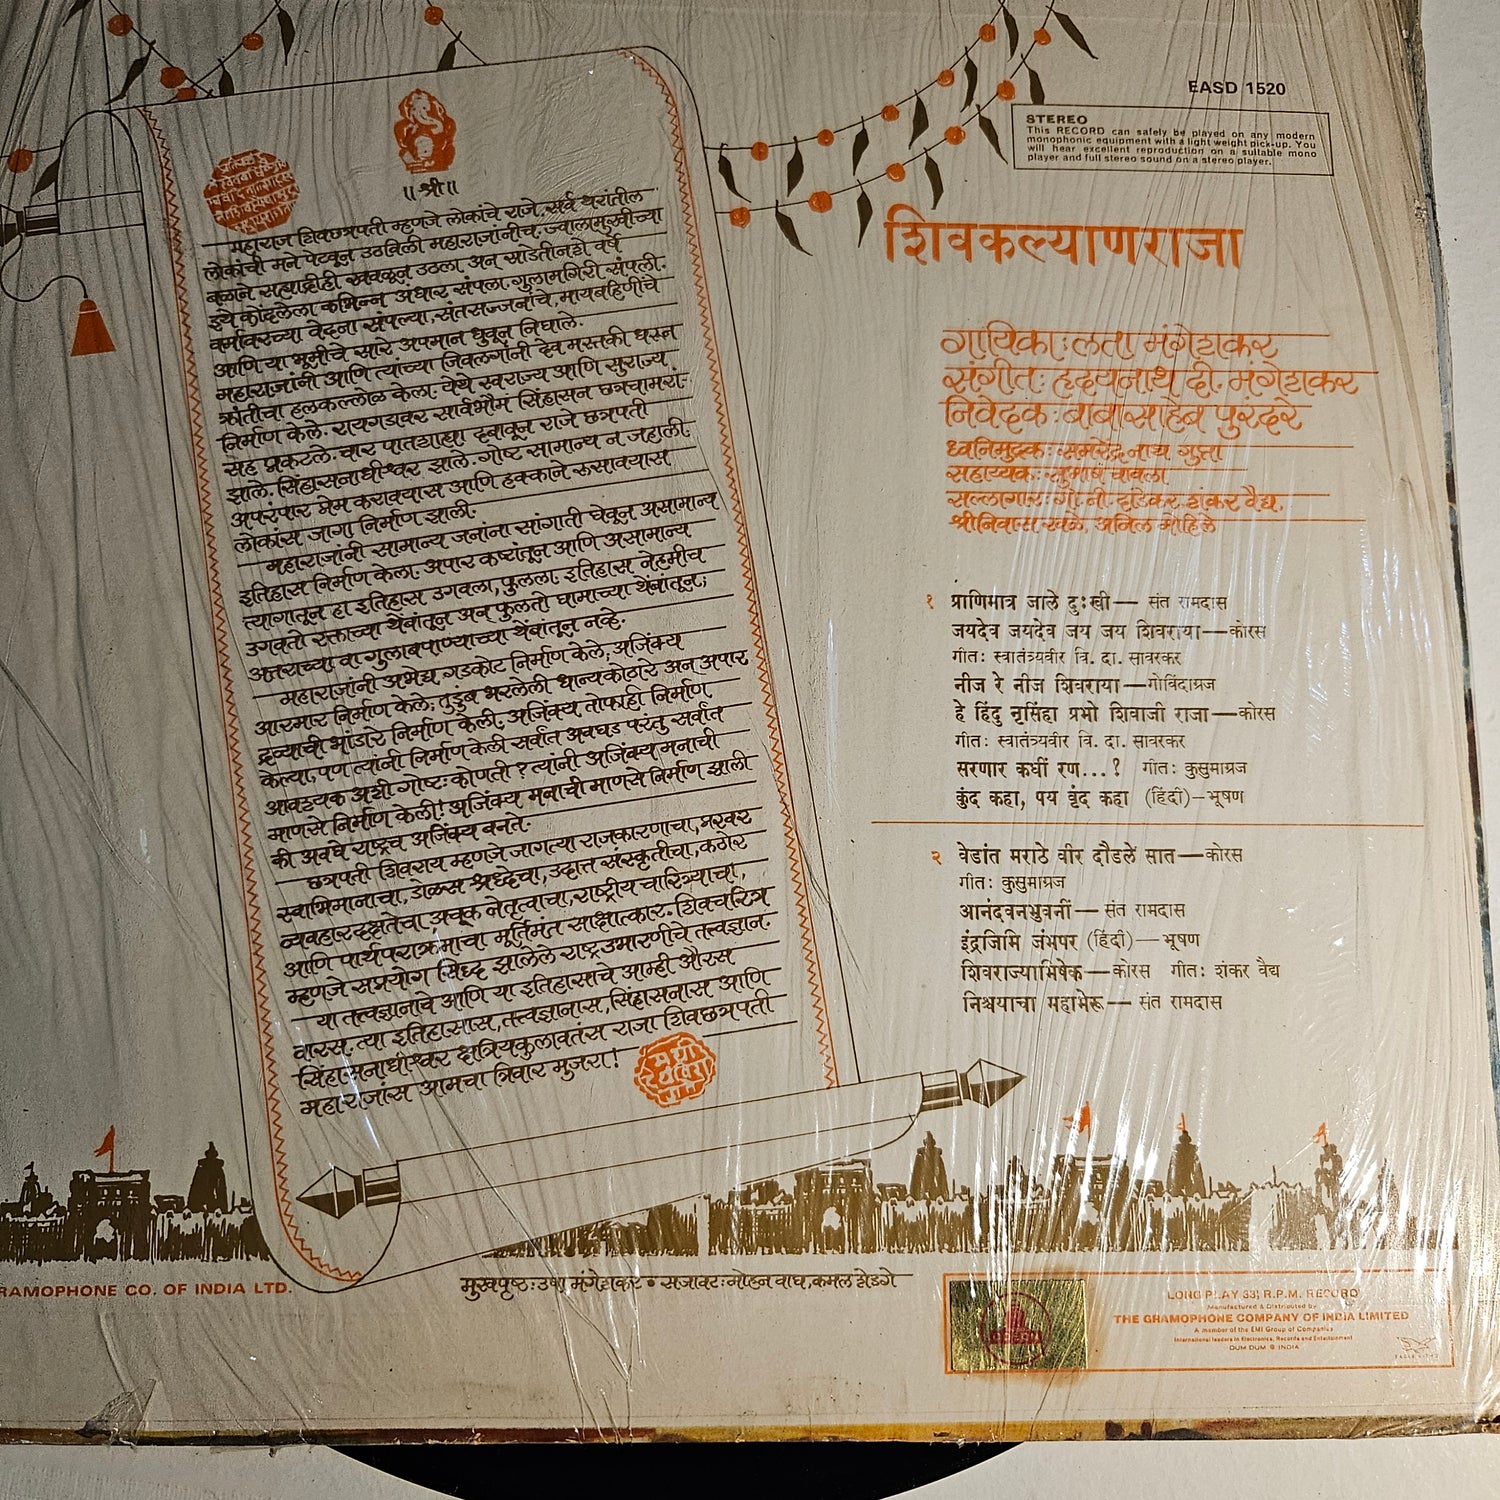 ॥श्री॥
महाराज शिवछत्रपती म्हणजे लोकांचे राजे. सर्व थरांतील
लोकांची मने पेटवून उठविली महाराजांनीच. ज्वालामुखीच्या
बळाने सह्याद्रीही खवळून उठला अन् साडेतीनशे वर्षे
इथे कोंदलेला कभिन्न अंधार संपला. गुलामगिरी संपली.
वर्मावरच्या वेदना संपल्या, संतसज्जनांचे, मायबहिणींचे
आणि या भूमीचे सारे अपमान धुवून निघाले.
महाराजांनी आणि त्यांच्या जिवलगांनी देव मस्तकी धरून
क्रांतीचा हलकल्लोळ केला. येथे स्वराज्य आणि सुराज्य
निर्माण केले. रायगडावर सार्वभौम सिंहासन छत्रचामरां-
सह प्रकटले. चार पातशाह्या दबावून राजे छत्रपती
झाले. सिंहासनाधीश्वर झाले. गोष्ट सामान्य न जहाली.
अपरंपार प्रेम करावयास आणि हक्काने रुसावयास
लोकांस जागा निर्माण झाली.
महाराजांनी सामान्य जनांना सांगाती घेवून असामान्य
इतिहास निर्माण केला. अपार कष्टांतून आणि असामान्य
त्यागातून हा इतिहास उगवला, फुलला. इतिहास नेहमीच
उगवतो रक्ताच्या थेंबांतून अन् फुलतो घामाच्या थेंबांतून;
अत्तराच्या वा गुलाबपाण्याच्या थेंबांतून नव्हे.
महाराजांनी अभेद्य गडकोट निर्माण केले, अजिंक्य
आरमार निर्माण केले, तुडुंब भरलेली धान्यकोठारे अन् अपार
द्रव्याची भांडारे निर्माण केली. अजिंक्य तोफाही निर्माण
केल्या, पण त्यांनी निर्माण केली सर्वांत अवघड परंतु सर्वांत
आवश्यक अशी गोष्ट: कोणती? त्यांनी अजिंक्य मनाची
माणसे निर्माण केली! अजिंक्य मनाची माणसे निर्माण झाली
की अवघे राष्ट्रच अजिंक्य बनते.
छत्रपती शिवराय म्हणजे जागत्या राजकारणाचा, प्रखर
स्वाभिमानाचा, डोळस श्रध्देचा, उदात्त संस्कृतीचा, कठोर
व्यवहारदक्षतेचा, अचूक नेतृत्वाचा, राष्ट्रीय चारित्र्याचा,
आणि पार्थपराक्रमाचा मूर्तिमंत साक्षात्कार. शिवचरित्र
म्हणजे सप्रयोग सिध्द झालेले राष्ट्रउभारणीचे तत्त्वज्ञान.
या तत्त्वज्ञानाचे आणि या इतिहासाचे आम्ही औरस
वारस. त्या इतिहासास, तत्त्वज्ञानास, सिंहासनास आणि
सिंहासनाधीश्वर क्षत्रियकुलावतंस राजा शिवछत्रपती
महाराजांस आमचा त्रिवार मुजरा!
EASD 1520
STEREO
This RECORD can safely be played on any modern
monophonic equipment with a light weight pick-up. You
will hear excellent reproduction on a suitable mono
player and full stereo sound on a stereo player.
शिवकल्याणराजा
गायिका: लता मंगेशकर
संगीत: हृदयनाथ दी. मंगेशकर
निवेदक: बाबासाहेब पुरंदरे
ध्वनिमुद्रक: समरेंद्रनाथ गुप्ता
सहाय्यक: सुभाष चावला
सल्लागार: गो. नी. दांडेकर, शंकर वैद्य,
श्रीनिवास खळे, अनिल मोहिले
१ प्राणिमात्र जाले दुःखी — संत रामदास
जयदेव जयदेव जय जय शिवराया — कोरस
गीत: स्वातंत्र्यवीर वि. दा. सावरकर
नीज रे नीज शिवराया — गोविंदाग्रज
हे हिंदु नृसिंहा प्रभो शिवाजी राजा — कोरस
गीत: स्वातंत्र्यवीर वि. दा. सावरकर
सरणार कधीं रण...? गीत: कुसुमाग्रज
कुंद कहा, पय वृंद कहा (हिंदी) — भूषण
२ वेडांत मराठे वीर दौडले सात — कोरस
गीत: कुसुमाग्रज
आनंदवनभुवनीं — संत रामदास
इंद्रजिमि जंभपर (हिंदी) — भूषण
शिवराज्याभिषेक — कोरस गीत: शंकर वैद्य
निश्चयाचा महामेरू — संत रामदास
RAMOPHONE CO. OF INDIA LTD.
मुखपृष्ठ: उषा मंगेशकर • सजावट: मोहन वाघ, कमल शेडगे
LONG PLAY 33⅓ R.P.M. RECORD
Manufactured & Distributed by
THE GRAMOPHONE COMPANY OF INDIA LIMITED
A member of the EMI Group of Companies
International leaders in Electronics, Records and Entertainment
DUM DUM INDIA